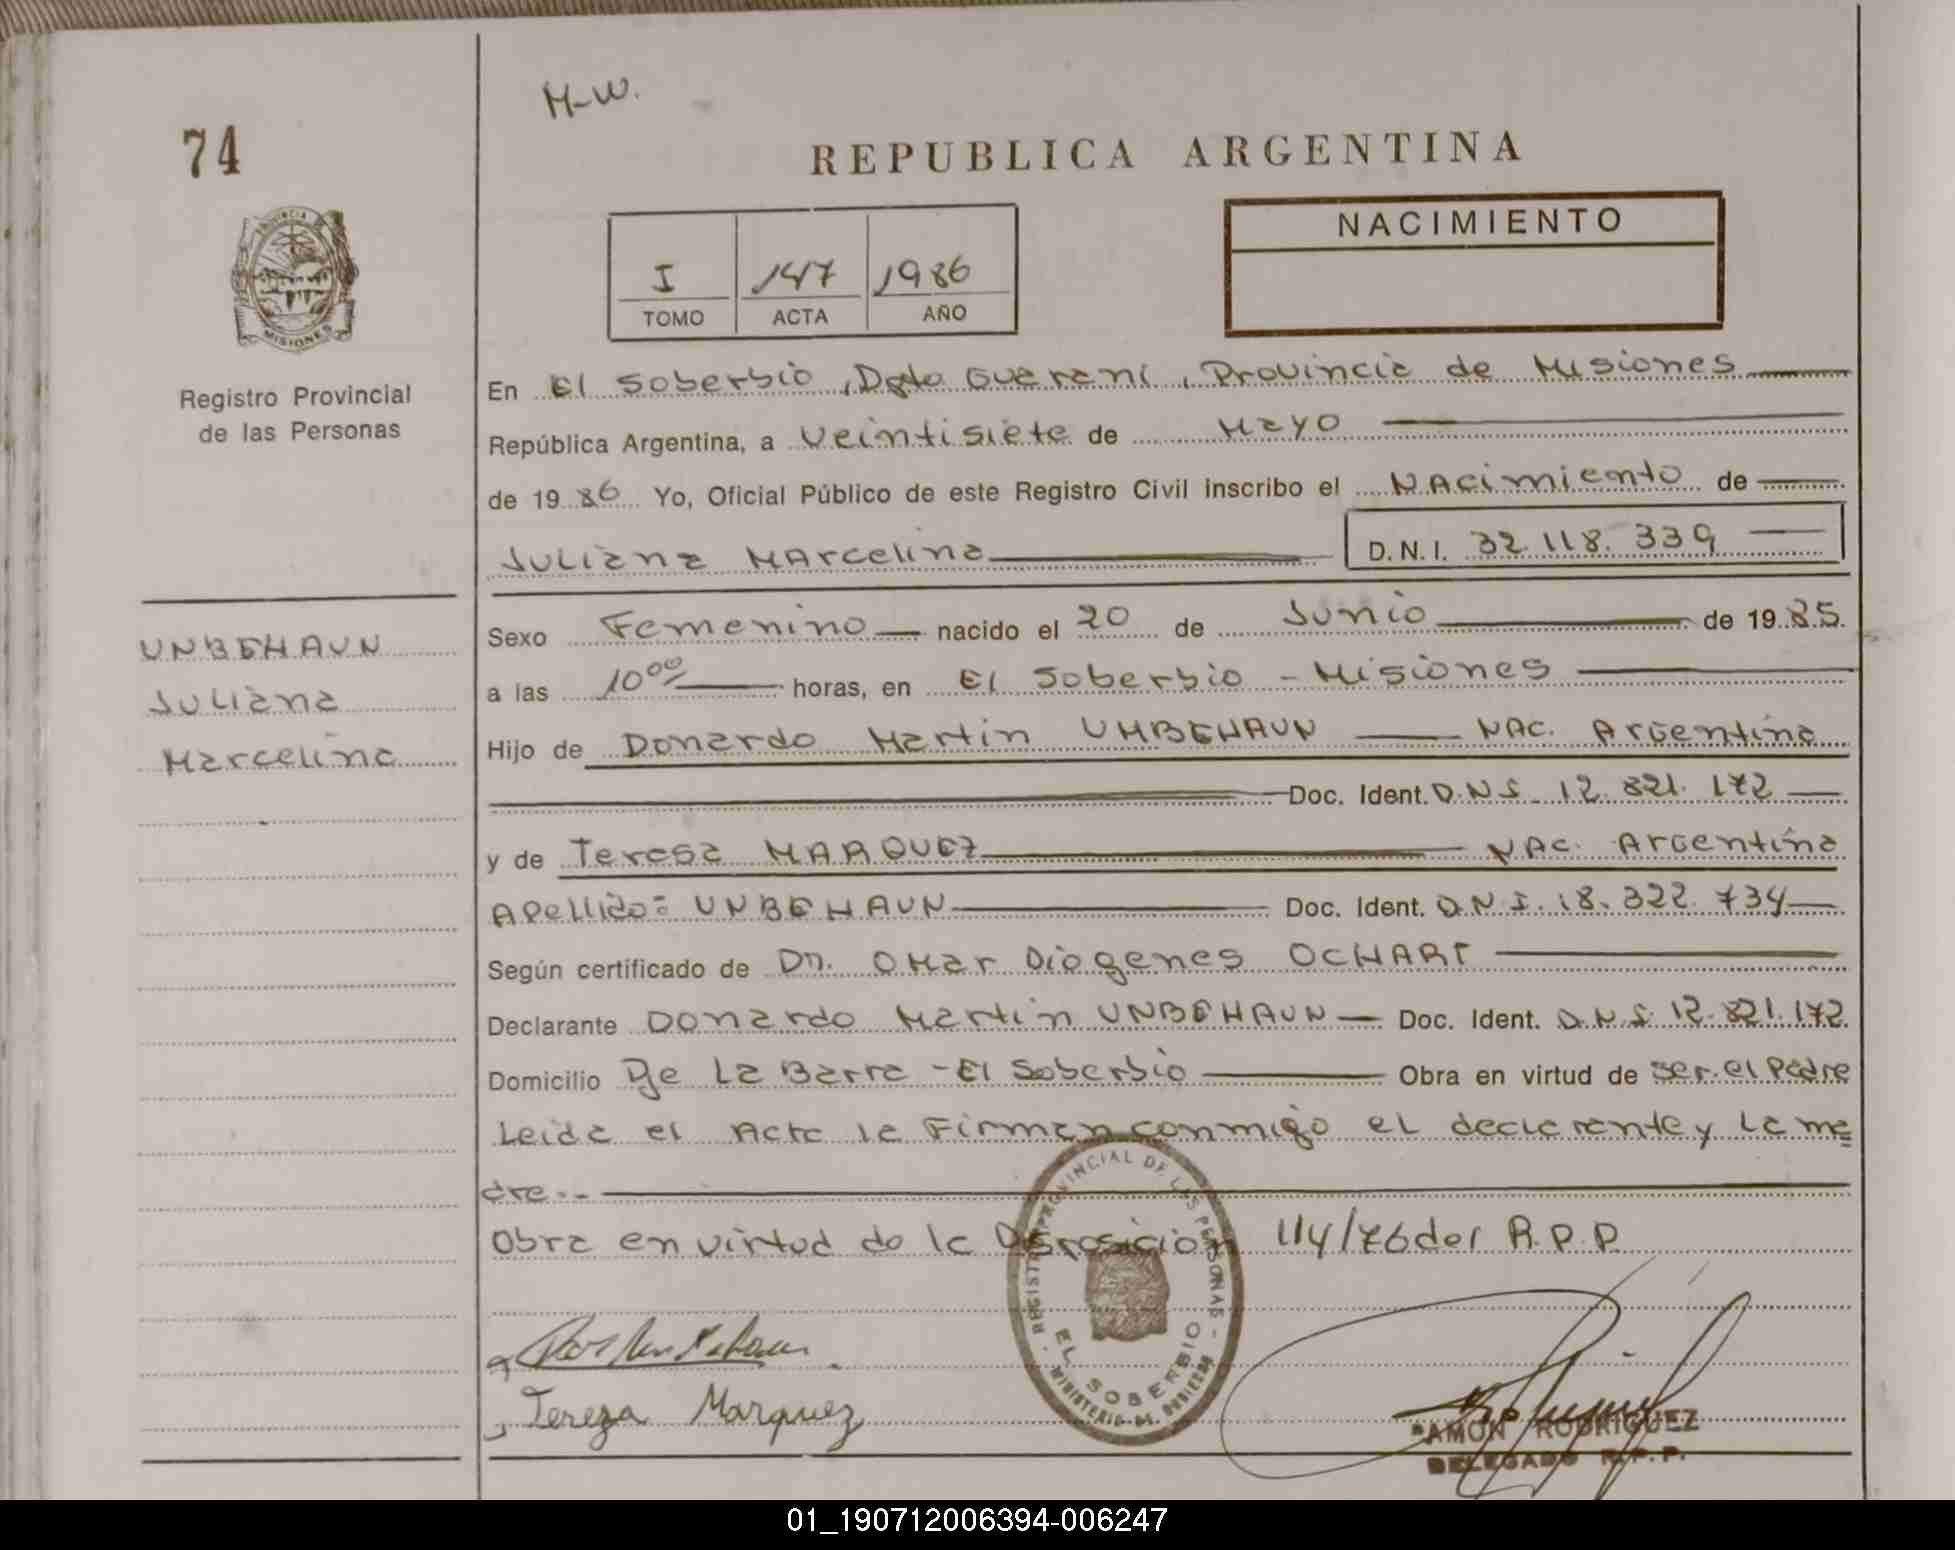 M-W.
74
REPUBLICA ARGENTINA
NACIMIENTO
I 147 1986
TOMO ACTA AÑO
PROVINCIA DE MISIONES
Registro Provincial
de las Personas
En El Soberbio, Dpto Guarani, Provincia de Misiones
República Argentina, a veintisiete de Mayo
de 1986 Yo, Oficial Público de este Registro Civil inscribo el Nacimiento de
Juliana Marcelina D.N.I. 32.118.339
UNBEHAUN
Juliana
Marcelina
Sexo Femenino nacido el 20 de Junio de 1985.
a las 10°° horas, en El Soberbio - Misiones
Hijo de Donardo Martin UMBEHAUN NAC. Argentina
Doc. Ident. D.N.I. 12.821.172
y de Teresa MARQUEZ NAC. Argentina
Apellido: UNBEHAUN Doc. Ident. D.N.I. 18.322.734
Según certificado de Dn. Omar Diogenes OCHART
Declarante Donardo Martin UNBEHAUN Doc. Ident. D.N.I. 12.821.172
Domicilio Pje La Barra - El Soberbio Obra en virtud de ser el Padre
Leida el Acta la Firman conmigo el declarante y La ma
dre.-
Obra en virtud de la Disposicion 114/76 del R.P.P.
REGISTRO PROVINCIAL DE LAS PERSONAS -
EL SOBERBIO
MINISTERIO DE GOBIERNO
Tereza Marquez
RAMON RODRIGUEZ
DELEGADO R.P.P.
01_190712006394-006247